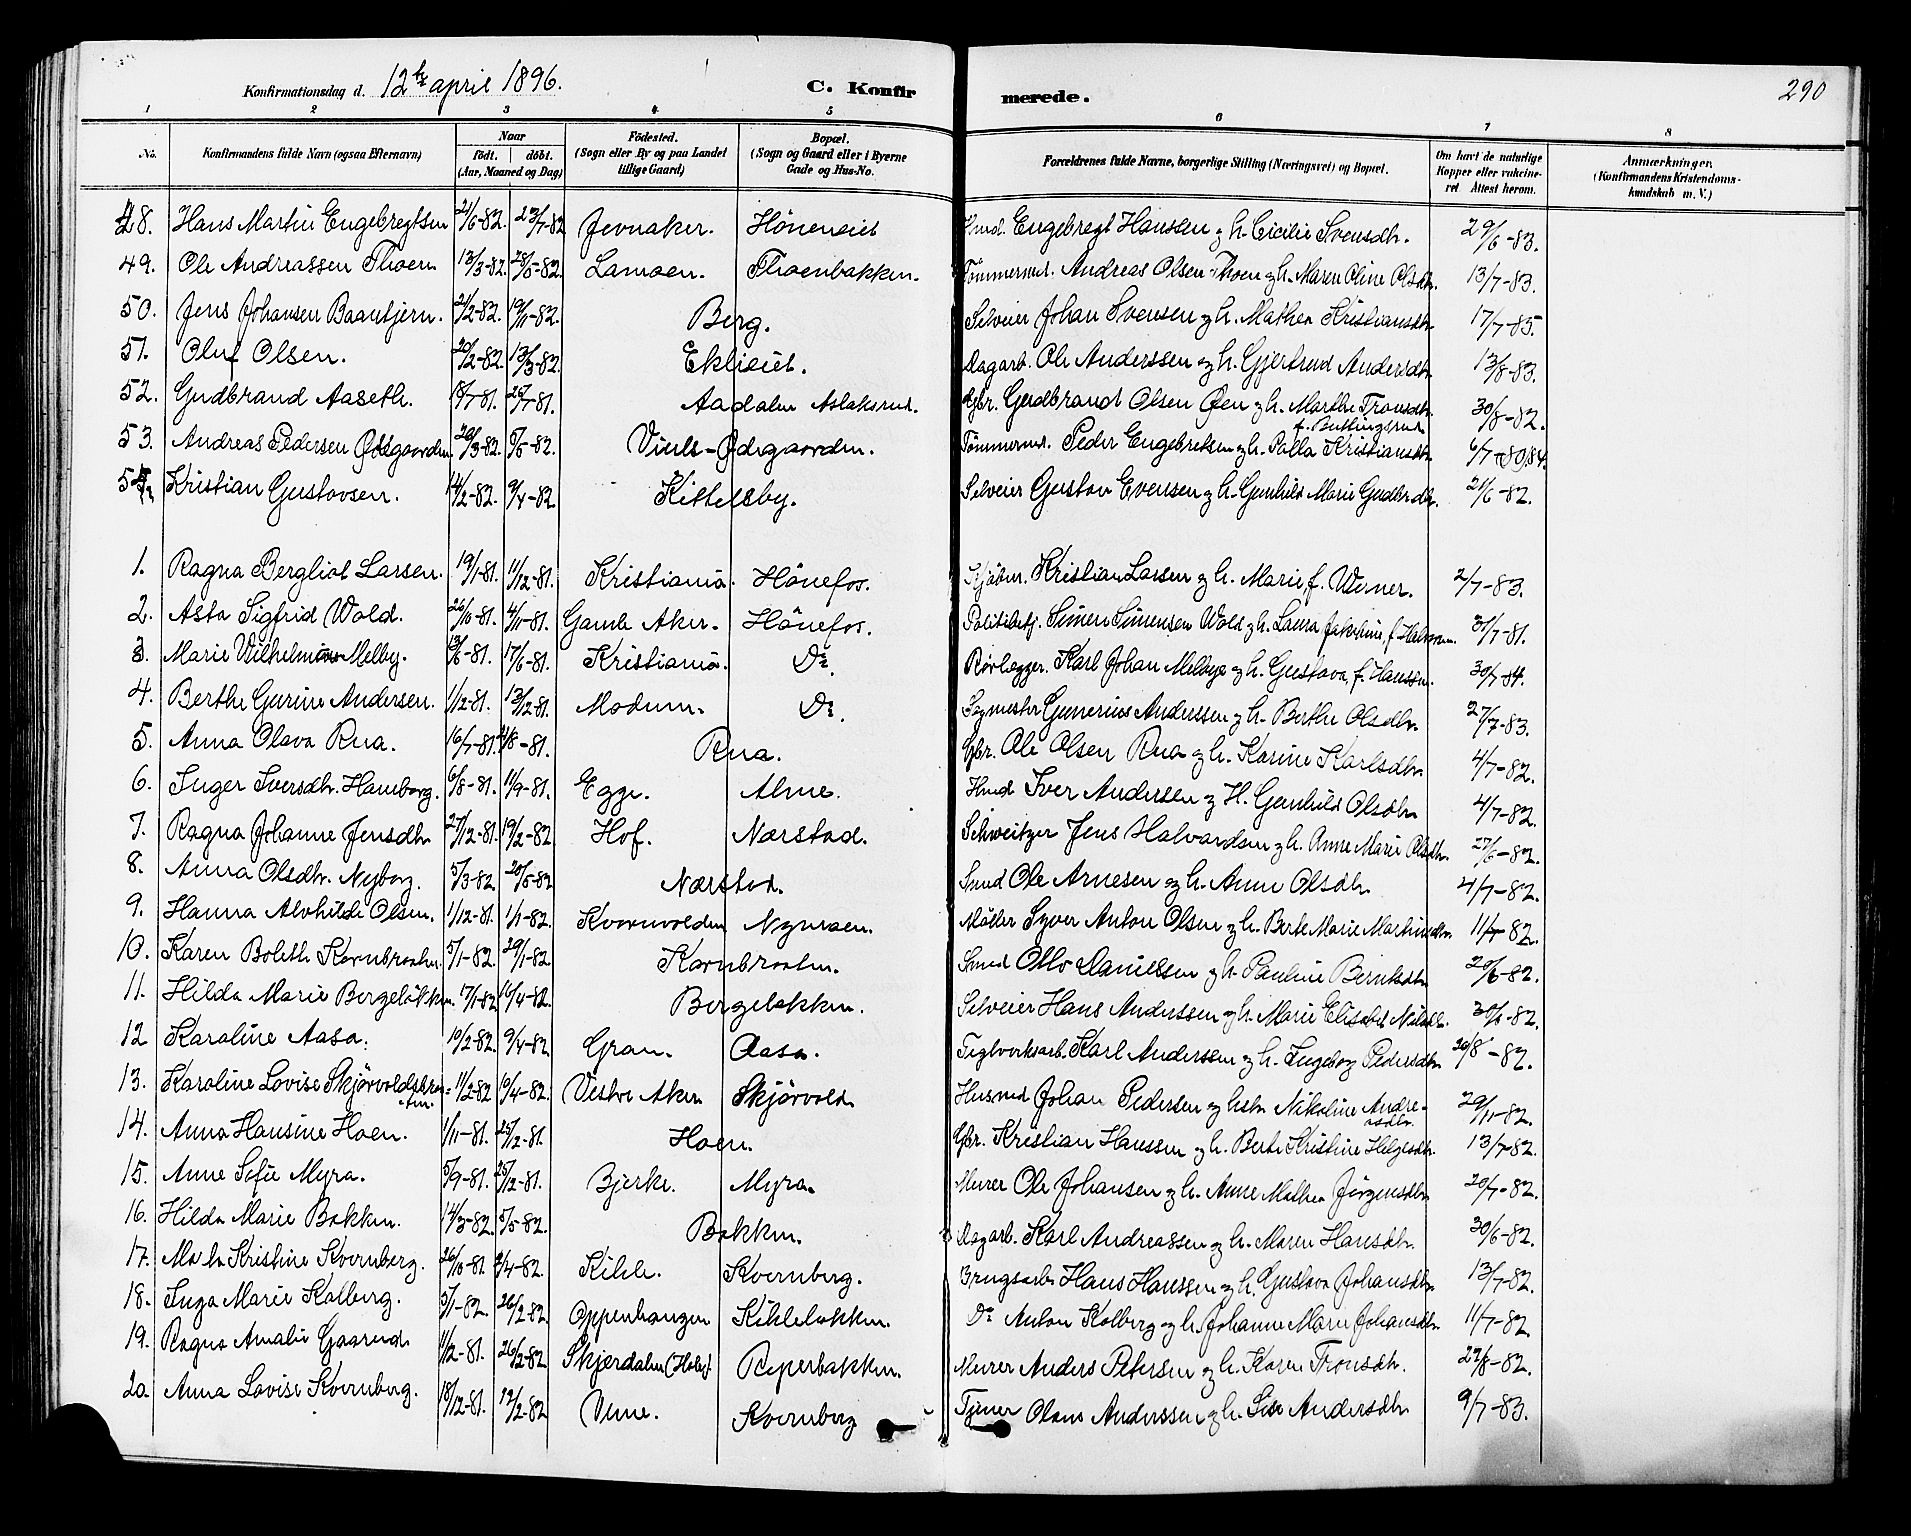 Konfirmationsdag d. 12te april 1896. C. Konfirmerede. 290
1 2 3 4 5 6 7 8
No. Konfirmandens fulde Navn (ogsaa Efternavn) Naar födt. döbt. (Aar, Maaned og Dag) Födested. (Sogn eller By og paa Landet tillige Gaard) Bopæl. (Sogn og Gaard eller i Byerne Gade og Hus-No. Forældrenes fulde Navne, borgerlige Stilling (Næringsvei) og Bopæl. Om havt de naturlige Kopper eller vakcineret Attest herom. Anmærkninger. (Konfirmandens Kristendomskundskab m. V.)
48. Hans Martin Engebregtsen 21/6-82. 23/7-82 Jevnaker. Höneneiet Smd. Engebregt Hanssen g h. Cicilie Svensdtr. 29/6-83.
49. Ole Andreassen Thoen 13/3-82. 28/5-82. Lamoen. Thoenbakken. Tömmermd. Andreas Olsen Thoen g h. Maren Oline Olsdtr. 13/7-83.
50. Jens Johansen Baantjern. 21/2-82. 19/11-82. Berg. Selveier Johan Svensen g h. Mathea Kristiansdtr 17/7-85.
51. Oluf Olsen. 20/2-82. 13/3-82. Eklieiet. Dagarb. Ole Anderssen g h. Gjertrud Andersdtr 13/8-83.
52. Gudbrand Aaseth. 18/7-81. 26/7-81. Aadalen Aslaksrud. Gbr. Gudbrand Olsen Öen g h. Marthe Tronsdtr. 30/8-82.
53. Andreas Pedersen Ödegaarden 20/3-82. 5/5-82. Viuls-Ödegaarden. Tömmermd. Peder Engebretsen g h. Polla Kristiansdtr 6/7-84.
54. Kristian Gustavsen. 14/2-82. 9/4-82 Kittelsby. Selveier Gustav Evensen g h. Gunhild Marie Gudbr.dtr. 21/6-82.
1. Ragna Bergliot Larsen. 19/1-81. 11/12-81. Kristiania. Hönefos. Kjöbm. Kristian Larsen g h. Marie, f. Werner. 2/7-83.
2. Asta Sigfrid Wold. 26/10-81. 4/11-81. Gamle Aker. Hönefos. Politibetj. Simen Simensen Wold g h. Laura Jakobine, f. 31/7-81.
3. Marie Wilhelmine Melby. 13/6-81. 17/6-81. Kristiania. Do. Rörlægger. Karl Johan Melbye g h. Gustava, f. Hanssen. 30/7-84.
4. Berthe Gurine Andersen. 1/12-81. 13/12-81. Modum. Do. Sagmester Gunerius Anderssen g h. Berthe Olsdtr. 27/7-83.
5. Anna Olava Rua. 16/7-81. 21/8-81. Rua. Gbr. Ole Olsen Rua g h. Karine Karlsdtr 4/7-82.
6. Inger Iversdtr. Hamborg. 6/8-81. 11/9-81. Egge. Alme. Hmd. Iver Andersen g H. Gunhild Olsdtr 4/7-82.
7. Ragna Johanne Jensdtr 27/12-81. 19/2-82 Hof. Nærstad. Schweitzer Jens Halvardsen g h. Anne Marie Olsdtr. 27/6-82.
8. Anna Olsdtr. Nyborg. 5/3-82 20/5-82 Nærstad. Smed Ole Arnesen og h. Anne Olsdtr 4/7-82.
9. Hanna Alvhilde Olsen. 1/12-81. 1/1-82. Kvernvolden Nymoen. Möller Syver Anton Olsen g h. Berte Marie Martinsdtr. 11/7-82.
10. Karen Bolette Kornbraaten. 5/1-82. 29/1-82 Kornbraaten. Smed Otto Danielsen g h. Pauline Berntsdtr 20/6-82.
11. Hilda Marie Bergeløkken. 7/1-82 16/4-82. Bergeløkken. Selveier Hans Anderssen g h. Marie Elisabet Nilsdtr. 30/6-82.
12 Karoline Aasa. 10/2-82. 9/4-82 Gran. Aasa. Teglverksarb. Karl Anderssen g h. Ingeborg Pedersdtr 26/8-82.
13. Karoline Lovise Skjörvoldsbraaten. 11/2-82 10/4-82. Vestre Aker Skjörvold. Husmd Johan Pedersen g hstr. Nikoline Andreasdtr. 29/11-82.
14. Anna Hansine Hoen. 1/11-81. 25/12-81. Hoen. Gbr. Kristian Hanssen g h. Berte Kristine Helgesdtr. 13/7-82.
15. Anne Sofie Myra. 5/9-81. 25/12-81. Bjerke. Myra. Murer Ole Johansen g h. Anne Mathea Jörgensdtr 20/7-82.
16. Hilda Marie Bakken. 14/3-82. 5/5-82. Bakken. Dagarb. Karl Andreassen g h. Maren Hansdtr. 30/6-82.
17. Kristine Kvernberg. 26/10-81. 2/4-82. Kihle. Kvernberg. Brugsarb. Hans Hanssen g h. Gustava Johansdtr. 13/7-82.
18. Inga Marie Kolberg. 5/1-82. 26/2-82. Oppenhaugen Kihleløkken. Do Anton Kolberg og h. Johanne Marie Johansdtr 11/7-82
19. Ragna Amalie Gaarud 11/2-81. 26/2-82 Skjerdalen (Hole). Peperbakken. Murer Anders Petersen g h. Karen Tronsdtr. 29/8-82.
20. Anna Lovise Kvernberg. 18/12-81. 12/2-82 Veme. Kvernberg Tjener Olaus Anderssen g h. Lise Andersdtr 9/7-83.